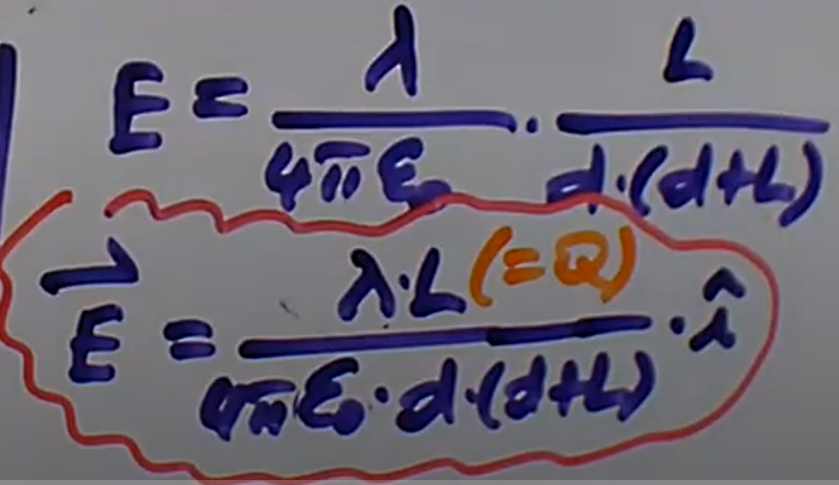 E = λ / 4πε₀ · L / d·(d+L)
E⃗ = λ·L (=Q) / 4πε₀·d·(d+L) · î